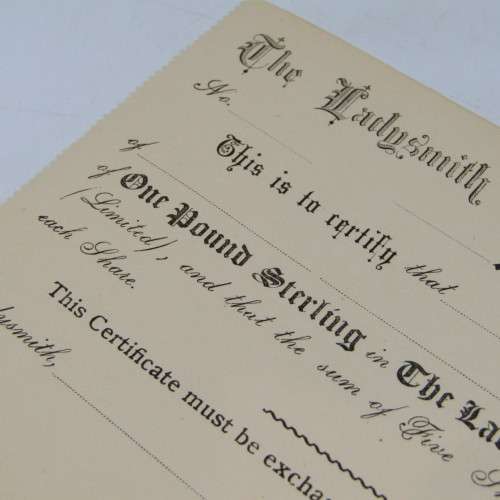 The Ladysmith
No.
This is to certify that
of
of One Pound Sterling in The La
(Limited), and that the sum of Five
each Share.
This Certificate must be excha
ysmith,